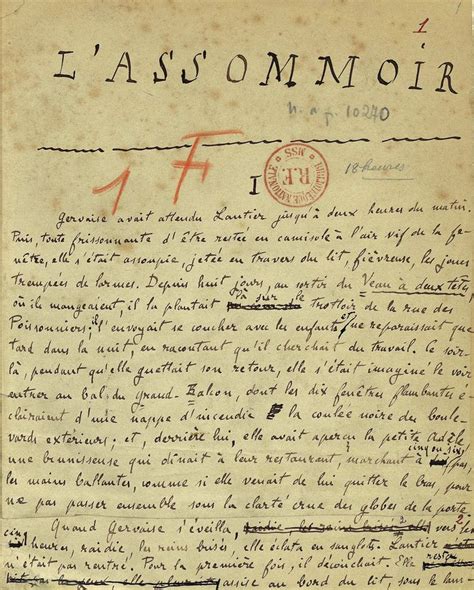 1
L'ASSOMMOIR
n. a f. 10270
1 F
BIBLIOTHEQUE NATIONALE MSS R.F.
18 heures
I
Gervaise avait attendu Lantier jusqu'à deux heures du matin.
Puis, toute frissonnante d'être restée en camisole à l'air vif de la fe-
nêtre, elle s'était assoupie, jetée en travers du lit, fièvreuse, les joues
trempées de larmes. Depuis huit jours, au sortir du Veau à deux têtes
où ils mangeaient, il la plantait là sur le trottoir de la rue des
Poissonniers; il l'envoyait se coucher avec les enfants et ne reparaissait que
tard dans la nuit, en racontant qu'il cherchait du travail. Ce soir-
là, pendant qu'elle guettait son retour, elle s'était imaginé le voir
entrer au bal du Grand-Balcon, dont les dix fenêtres flambantes
éclairaient d'une nappe d'incendie la coulée noire des boule-
vards extérieurs; et, derrière lui, elle avait aperçu la petite Adèle
une brunisseuse qui dînait à leur restaurant, marchant à cinq ou six pas,
les mains ballantes, comme si elle venait de lui quitter le bras, pour
ne pas passer ensemble sous la clarté crue des globes de la porte.
2
Quand Gervaise s'éveilla, vers les
cinq heures, raidie, les reins brisés, elle éclata en sanglots. Lantier
n'était pas rentré. Pour la première fois, il découchait. Elle resta
assise au bord du lit, sous le lam-